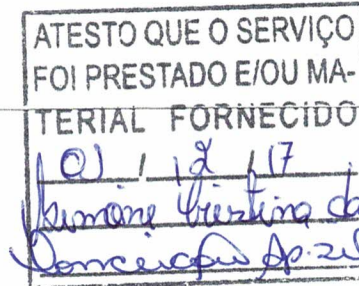 ATESTO QUE O SERVIÇO
FOI PRESTADO E/OU MA-
TERIAL FORNECIDO
01 / 12 / 17
Simone Cristina da
Conceição Ap.